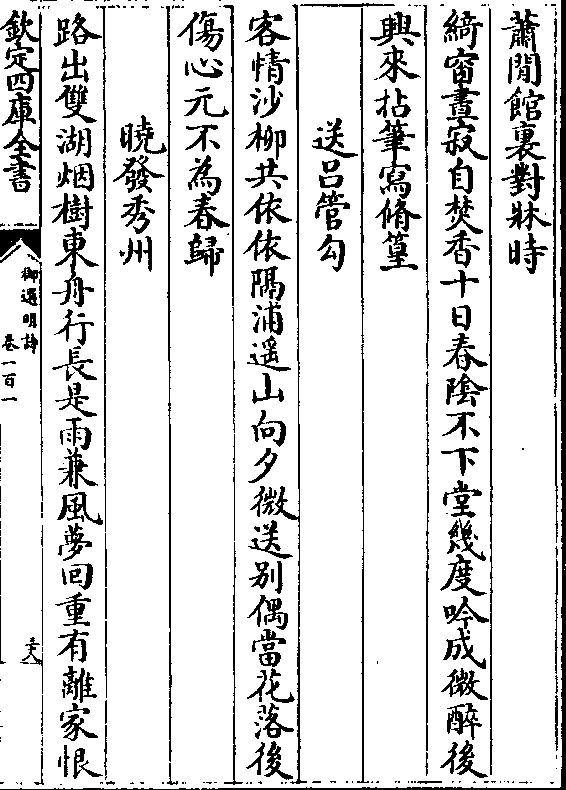 蕭閒館裏對牀時
綺窗晝寂自焚香十日春陰不下堂幾度吟成微醉後
興來拈筆寫脩篁
送吕管勾
客情沙柳共依依隔浦遥山向夕微送别偶當花落後
傷心元不為春歸
曉發秀州
路出雙湖烟樹東舟行長是雨兼風夢回重有離家恨
欽定四庫全書
御選明詩
卷一百一